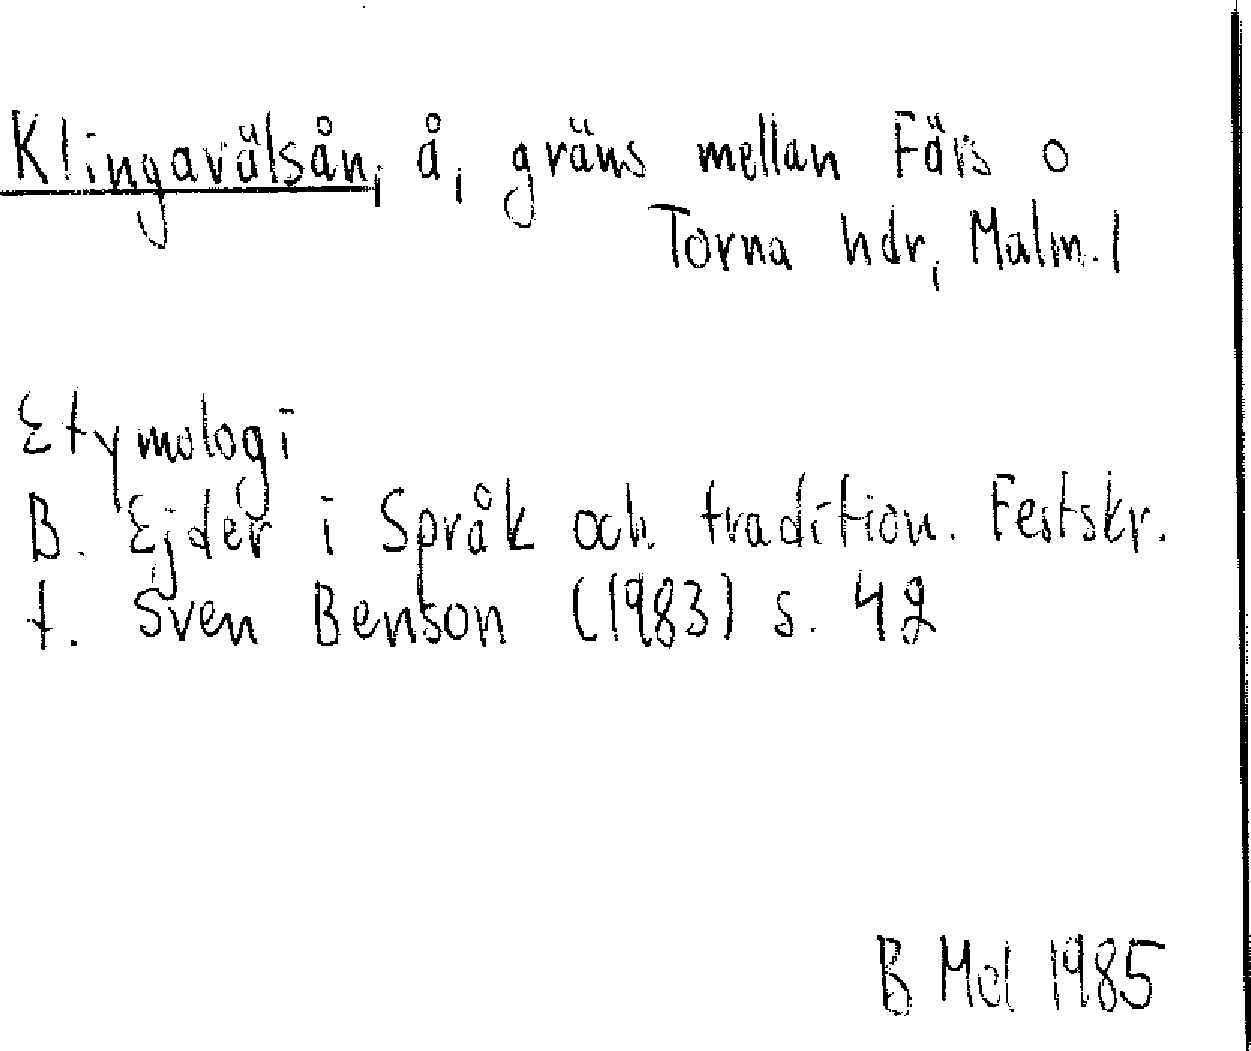 Klingavälsån, å, gräns mellan Färs o
Torna hdr, Malm. l
Etymologi
B. Ejder i Språk och tradition. Festskr.
t. Sven Benson (1983) s. 42
B Mol 1985